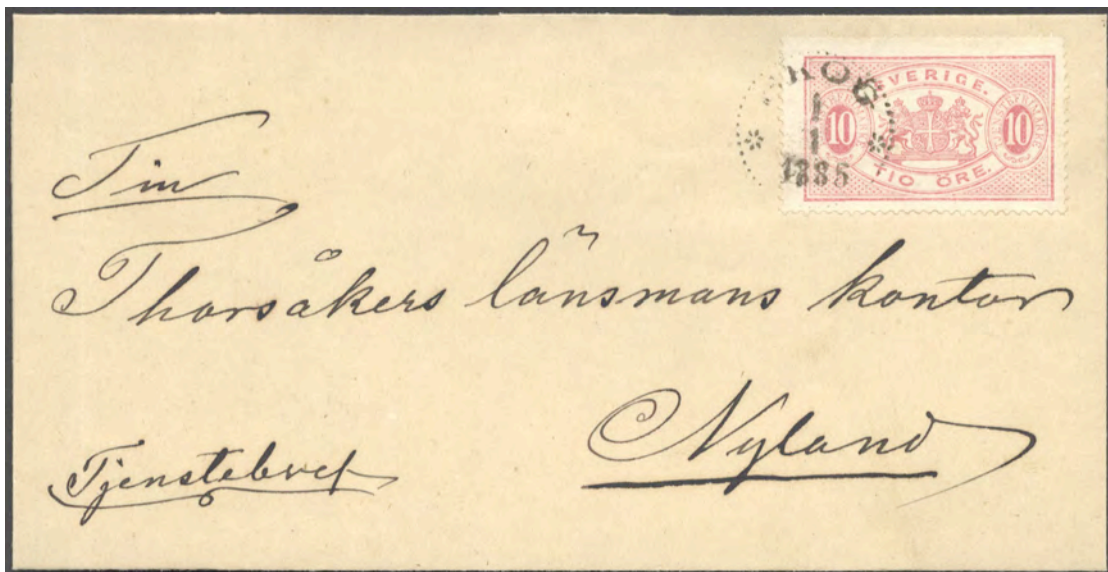 SKOG
1
1
1885
SVERIGE.
10 10
TIO ÖRE.
Till
Thorsåkers länsmans kontor
Nyland
Tjenstebref